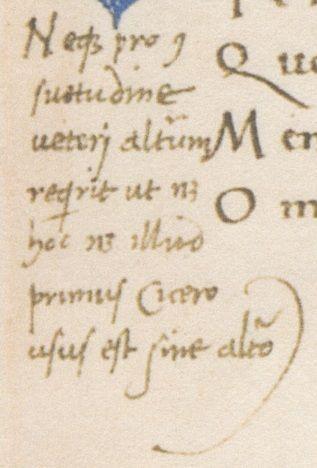 Neqȝ pro ꝯ
suetudine
veteri altũm
reqꝛit ut nȝ
hoc nȝ illud
primus Cicero
usus est sine altõ
Que
Men
Om